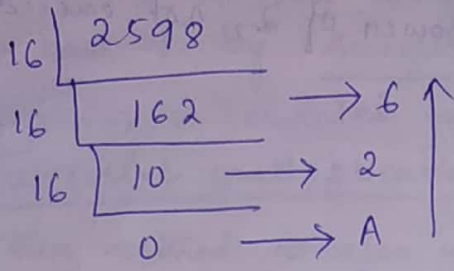 16 2598
16 162 → 6
16 10 → 2
0 → A